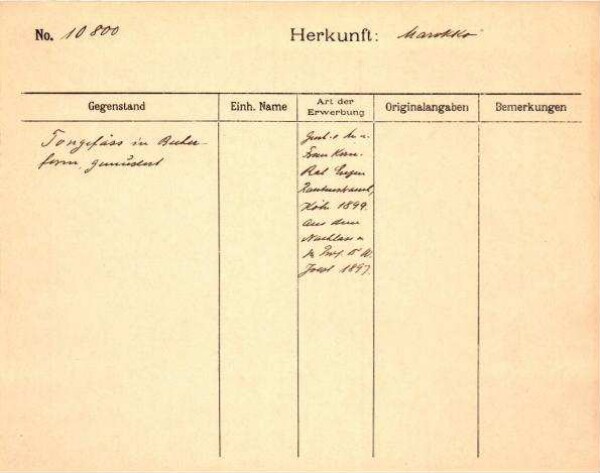 No. 10800 Herkunft: Marokko
Gegenstand Einh. Name Art der Erwerbung Originalangaben Bemerkungen
Tongefäss in Becher-
form, gemustert
Gesch. v. H. u.
Frau Kom.
Rat Eugen
Rautenstrauch,
Köln 1899.
Aus dem
Nachlass v.
Prof. Dr. W.
Joest 1897.